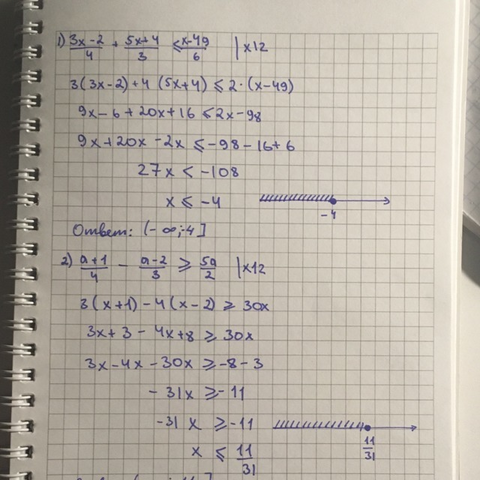 1) (3x-2)/4 + (5x+4)/3 ≤ (x-49)/6 | x12
3(3x-2)+4(5x+4) ≤ 2·(x-49)
9x-6+20x+16 ≤ 2x-98
9x+20x-2x ≤ -98-16+6
27x < -108
x ≤ -4
-4
Ответ: (-∞;-4]
2) (a+1)/4 - (a-2)/3 ≥ 5a/2 | x12
3(x+1)-4(x-2) ≥ 30x
3x+3-4x+8 ≥ 30x
3x-4x-30x ≥ -8-3
-31x ≥ -11
-31x ≥ -11
x ≤ 11/31
11/31